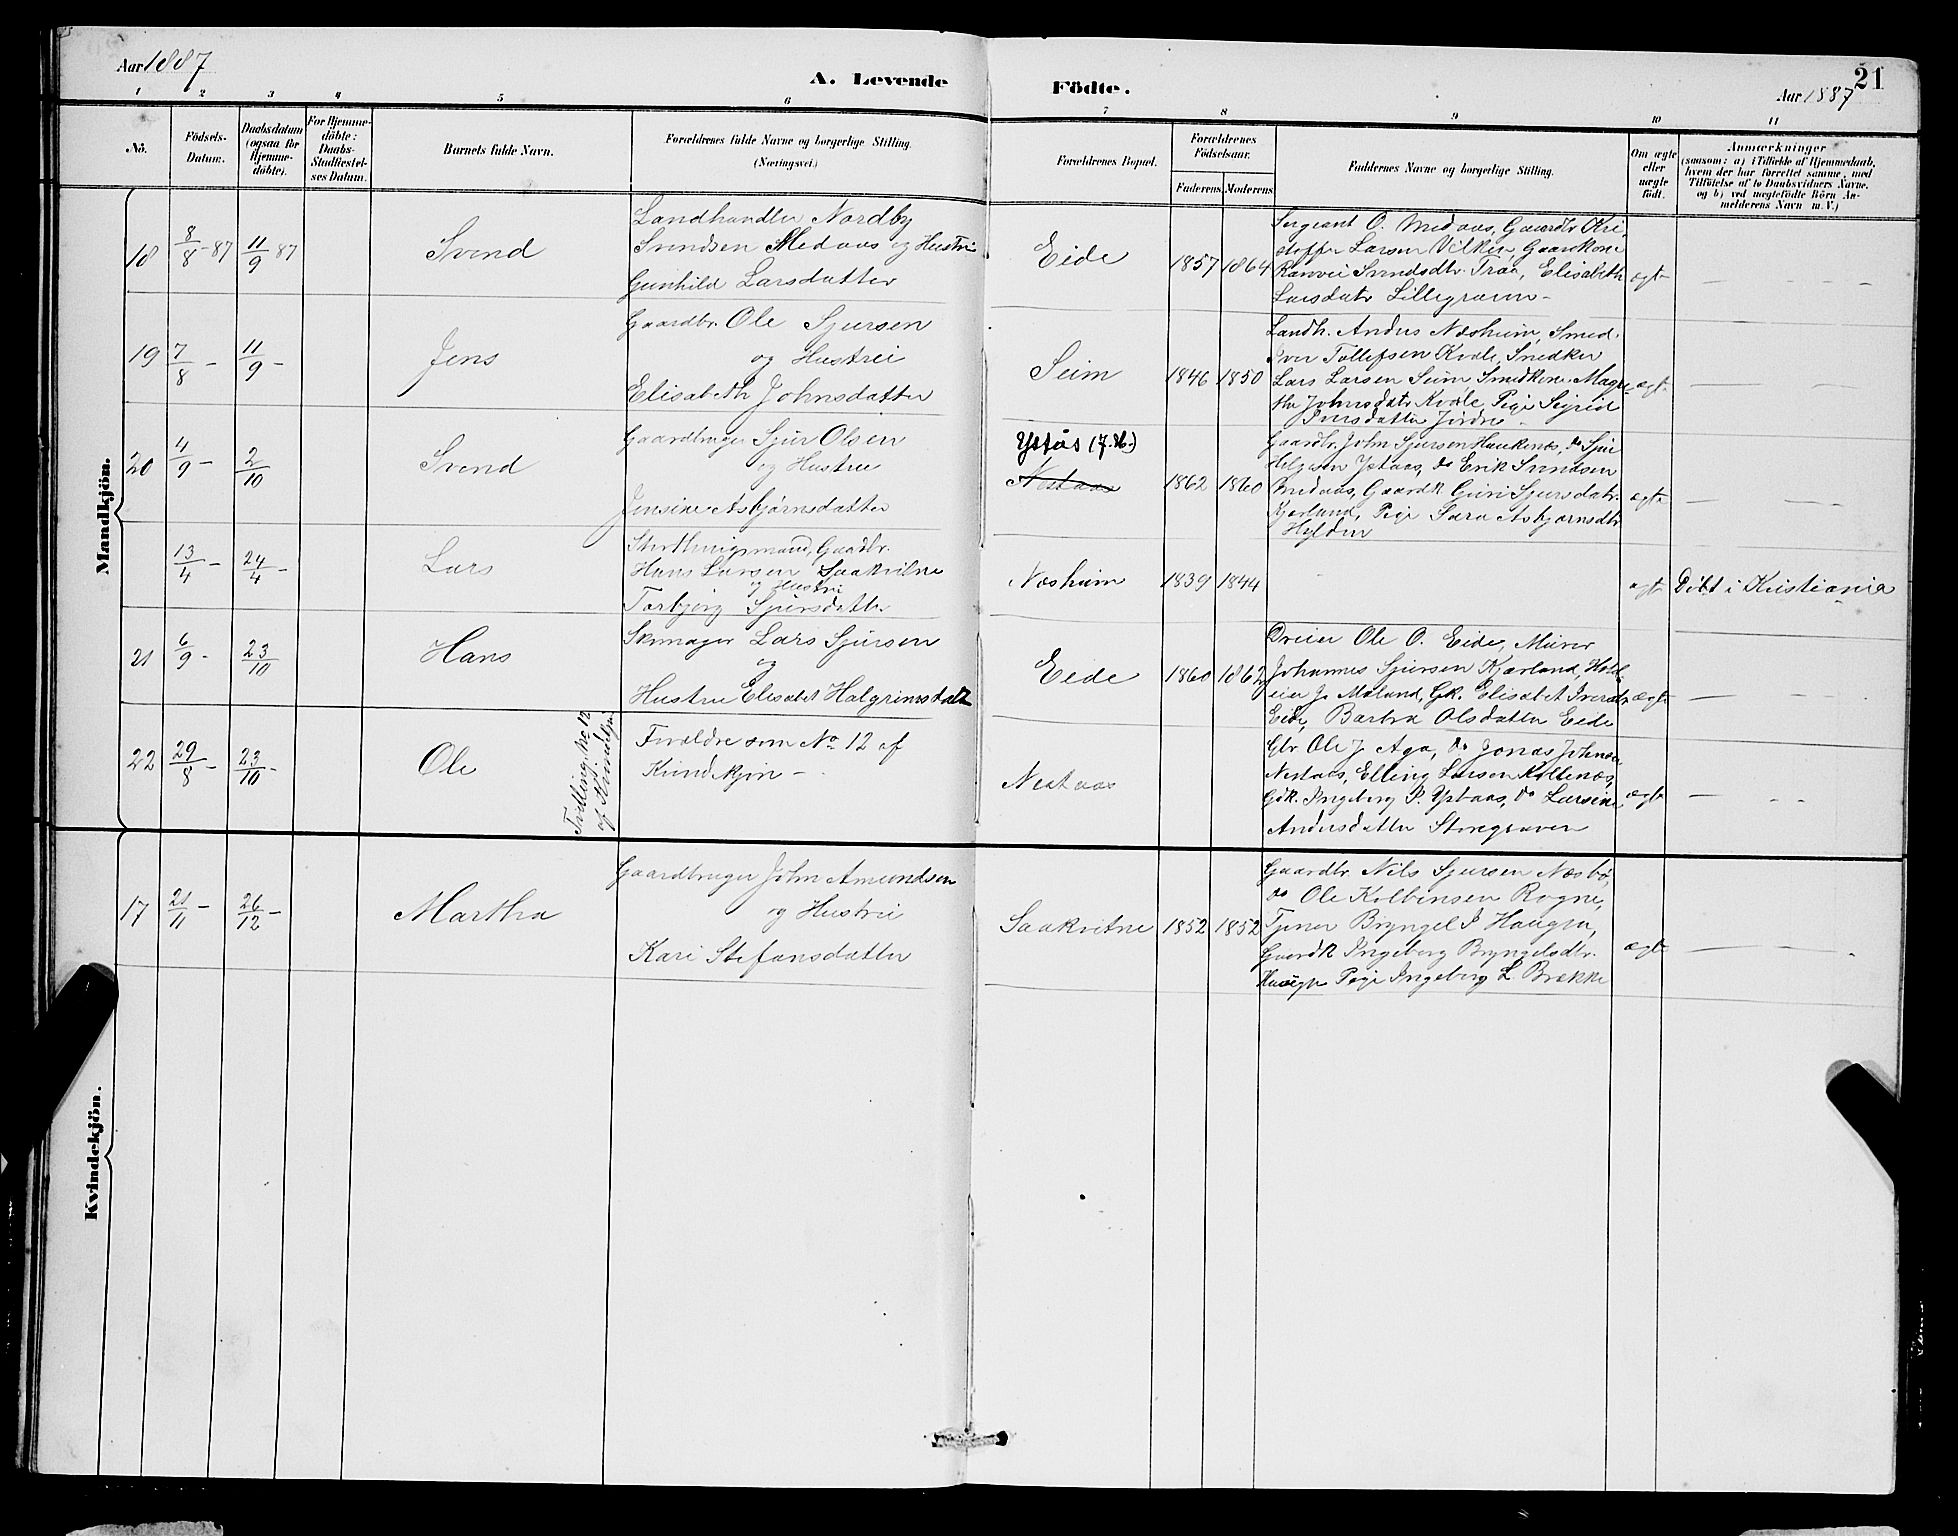 Aar 1887
A. Levende Födte.
21
Aar 1887
1 2 3 4 5 6 7 8 9 10 11
No.
Födsels-
Datum.
Daabsdatum
(ogsaa for
Hjemme-
döbte).
For Hjemme-
döbte:
Daabs-
Stadfæstel-
ses Datum.
Barnets fulde Navn.
Forældrenes fulde Navne og borgerlige Stilling.
(Næringsvei.)
Forældrenes Bopæl.
Forældrenes
Födselsaar.
Faderens. Moderens.
Faddernes Navne og borgerlige Stilling.
Om ægte
eller
uægte
födt.
Anmærkninger
(saasom: a) i Tilfælde af Hjemmedaab,
hvem der har forrettet samme, med
Tilföielse af to Daabsvidners Navne,
og b) ved uægtefödte Börn An-
melderens Navn m. V.)
Mandkjön.
18 8/8 - 87 11/9 87
Svend
Landhandler Nordby
Svendsen Medaas og Hustru
Gunhild Larsdatter
Eide
1857 1864
Sergeant O. Medaas, Gaardbr Kri
stoffer Larsen Vilken, Gaardkone
Ranvei Svendsdtr. Traa, Elisabeth
Larsdatr Lillegraven -
ægte
19 7/8 - 11/9 -
Jens
Gaardbr. Ole Sjursen
og Hustru
Elisabeth Johnsdatter
Seim
1846 1850
Landh. Anders Næsheim, Smed
Iver Tollefsen Kvale, Snedker
Lars Larsen Seim, Smedkone Magre-
the Johnsdatr Kvale, Pige Sigrid
Iversdatter Jordre
ægte
20 4/9 - 2/10
Svend
Gaardbruger Sjur Olsen
og Hustru
Jensine Asbjørnsdatter
Ystås (7.)
Nestaas
1862 1860
Gaardbr. John Sjursen Haukenæs, do Sjur
Helgesen Ystaas, do Erik Svendsen
Medaas, Gaardk. Guri Sjursdatr.
Kjærland, Pige Sara Asbjørnsdtr
Hylden
ægte
13/4 - 24/4 -
Lars
Storthingsmand, Gaardbr.
Hans Larsen Saakvitne
og Hustru
Torbjørg Sjursdatter
Næsheim
1839 1844
ægte
Döbt i Kristiania
21 6/9 - 23/10
Hans
Skomager Lars Sjursen
og
Hustru Elisabet Halgrimsdatt
Eide
1860 1862
Dreier Ole O. Eide, Murer
Johannes Sjursen Kjærland, Hotel
eier J. Mæland, Gk. Elisabet Iversdtr
Eide, Barbra Olsdatter Eide
ægte
22 29/8 - 23/10 -
Ole
Tvilling No 12
af Kvindekjøn
Forældre som No 12 af
Kvindekjøn -
Nestaas
Gbr. Ole J. Aga, do Jonas Johnsen
Nestaas, Elling Larsen Koltenæs,
Gdk. Ingeborg S. Ystaas, do Larsine
Andersdatter Storegraven
ægte
Kvindekjön.
17 21/11 - 26/12 -
Martha
Gaardbruger John Amundsen
og Hustru
Kari Stefansdatter
Saakvitne
1852 1852
Gaardbr. Nils Sjursen Næsbø,
do Ole Kolbensen Rogne,
Tjener Bryngel J. Haugen,
Gaardk Ingeborg Bryngelsdtr.
Haugen Pige Ingeborg L Brække
ægte